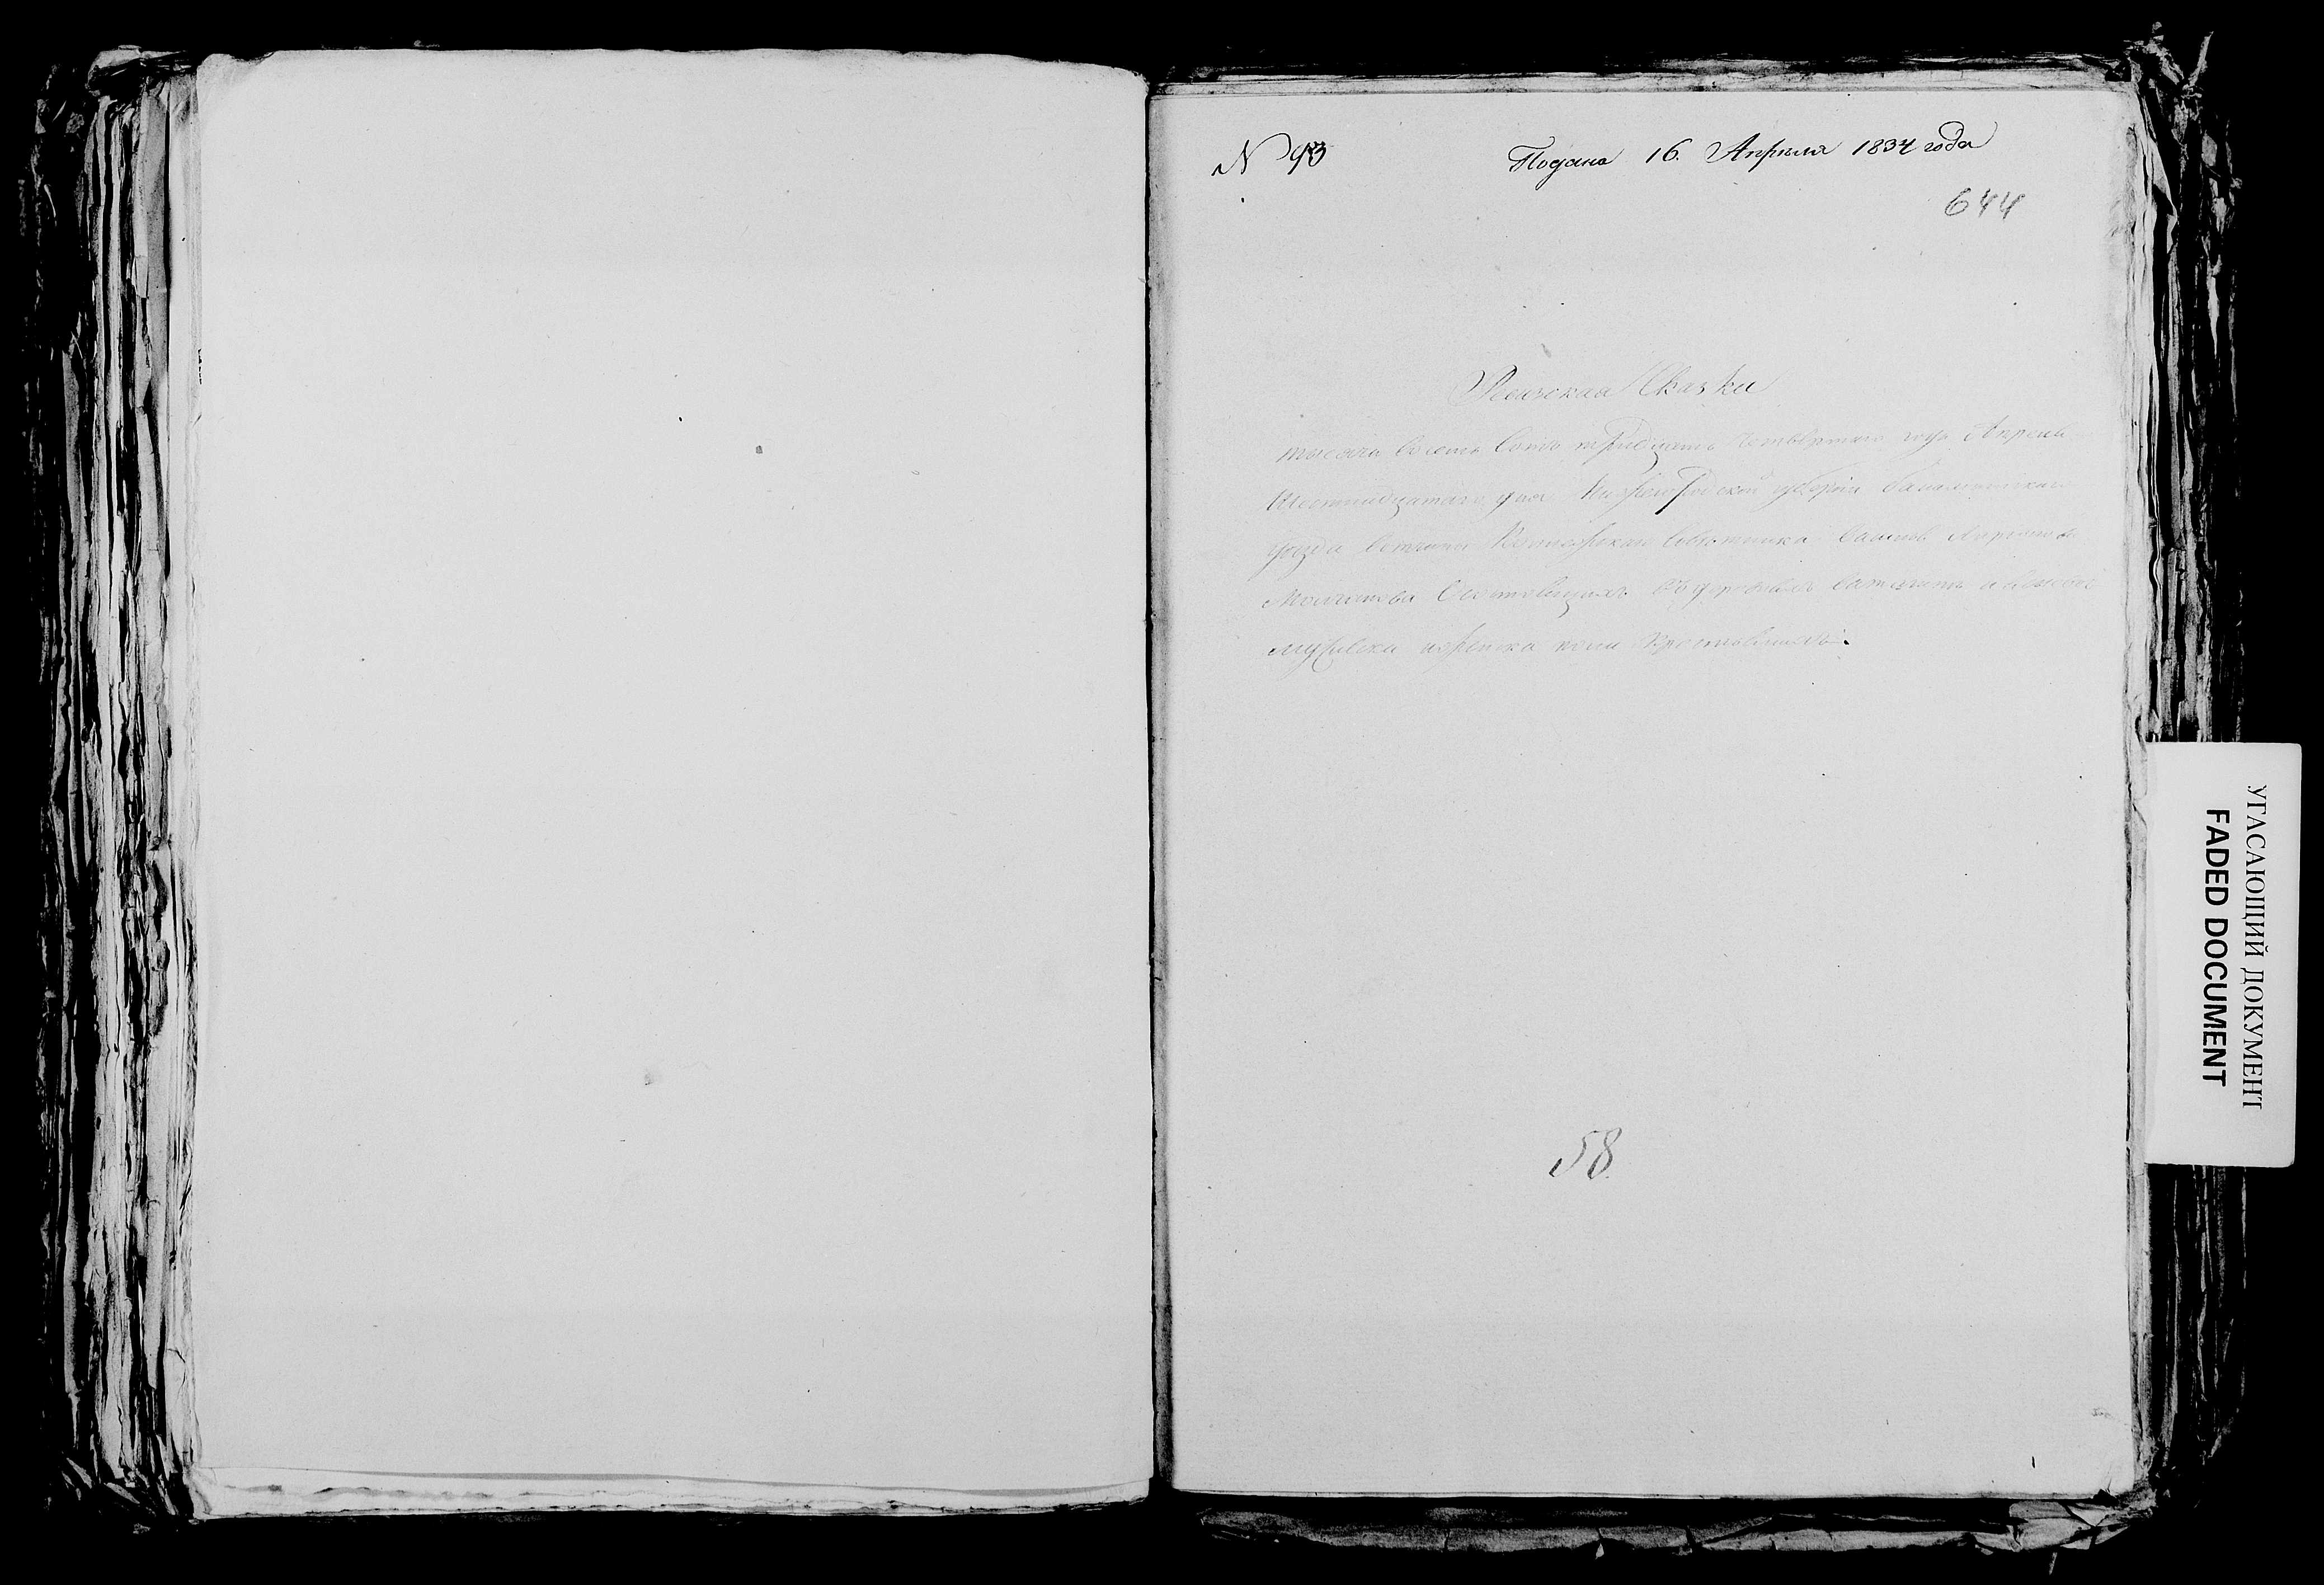 N 93
Подана 16. Апреля 1834 года
644
Ревизская Сказка
тысяча восемь сотъ тридцать четвертаго года Апреля
Шестнадцатаго дня Нижегородской губернии Балахнинскаго
уезда вотчины Советника
Состоящихъ въ деревняхъ
мужеска и женска пола крестьянахъ.
58
УГАСАЮЩИЙ ДОКУМЕНТ
FADED DOCUMENT